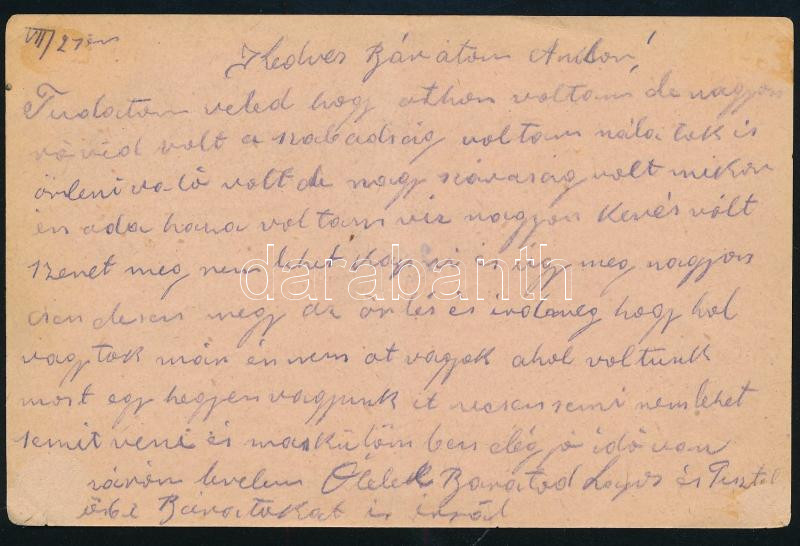 VII/27én
Kedves Bárátom Ankon!
Tudatom veled hogy othon voltam, de nagyon
rövid volt a szabadság voltam nála tok is
örleni va ló volt de nagy száraság volt mikor
én oda haza voltam víz nagyon kevés vólt
szenet meg nem lehet kap ni is így meg nagyon
csen desen megy az örlés és ird meg hogy hol
vagytok már én nem ot vagyok ahol voltunk
most egy hegyen vagyunk it nicsen semi nem lehet
semit veni és maskülöm ben elég jó idő van
várom levelem Ölelel Baratod Lajos és Tisztel
Bárátokat is
darabanth